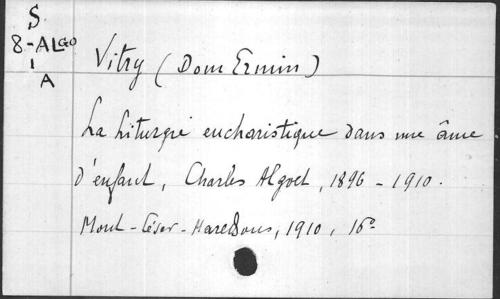 S.
8-ALGO
1
A
Vitry (Dom Ermin)
La Liturgie eucharistique dans une âme
d'enfant, Charles Algoet, 1896-1910.
Mont-César-Maredsous, 1910, 16°